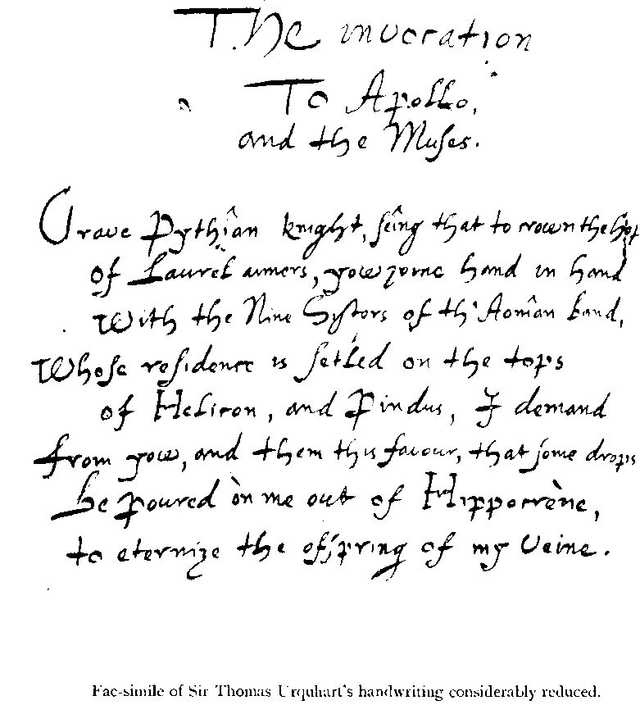 The invocation
To Apollo,
and the Muses.
Grave Pythîan knight, sêing that to crown the hop
of Laurel aimers, yow joine hand in hand
With the Nine Systors of th' Aonîan band,
Whose residence is setled on the tops
of Helicon, and Pindus, I demand
from yow, and them this favour, that some drops
be poured on me out of Hippocrène,
to eternize the offspring of my Veine.
Fac-simile of Sir Thomas Urquhart's handwriting considerably reduced.